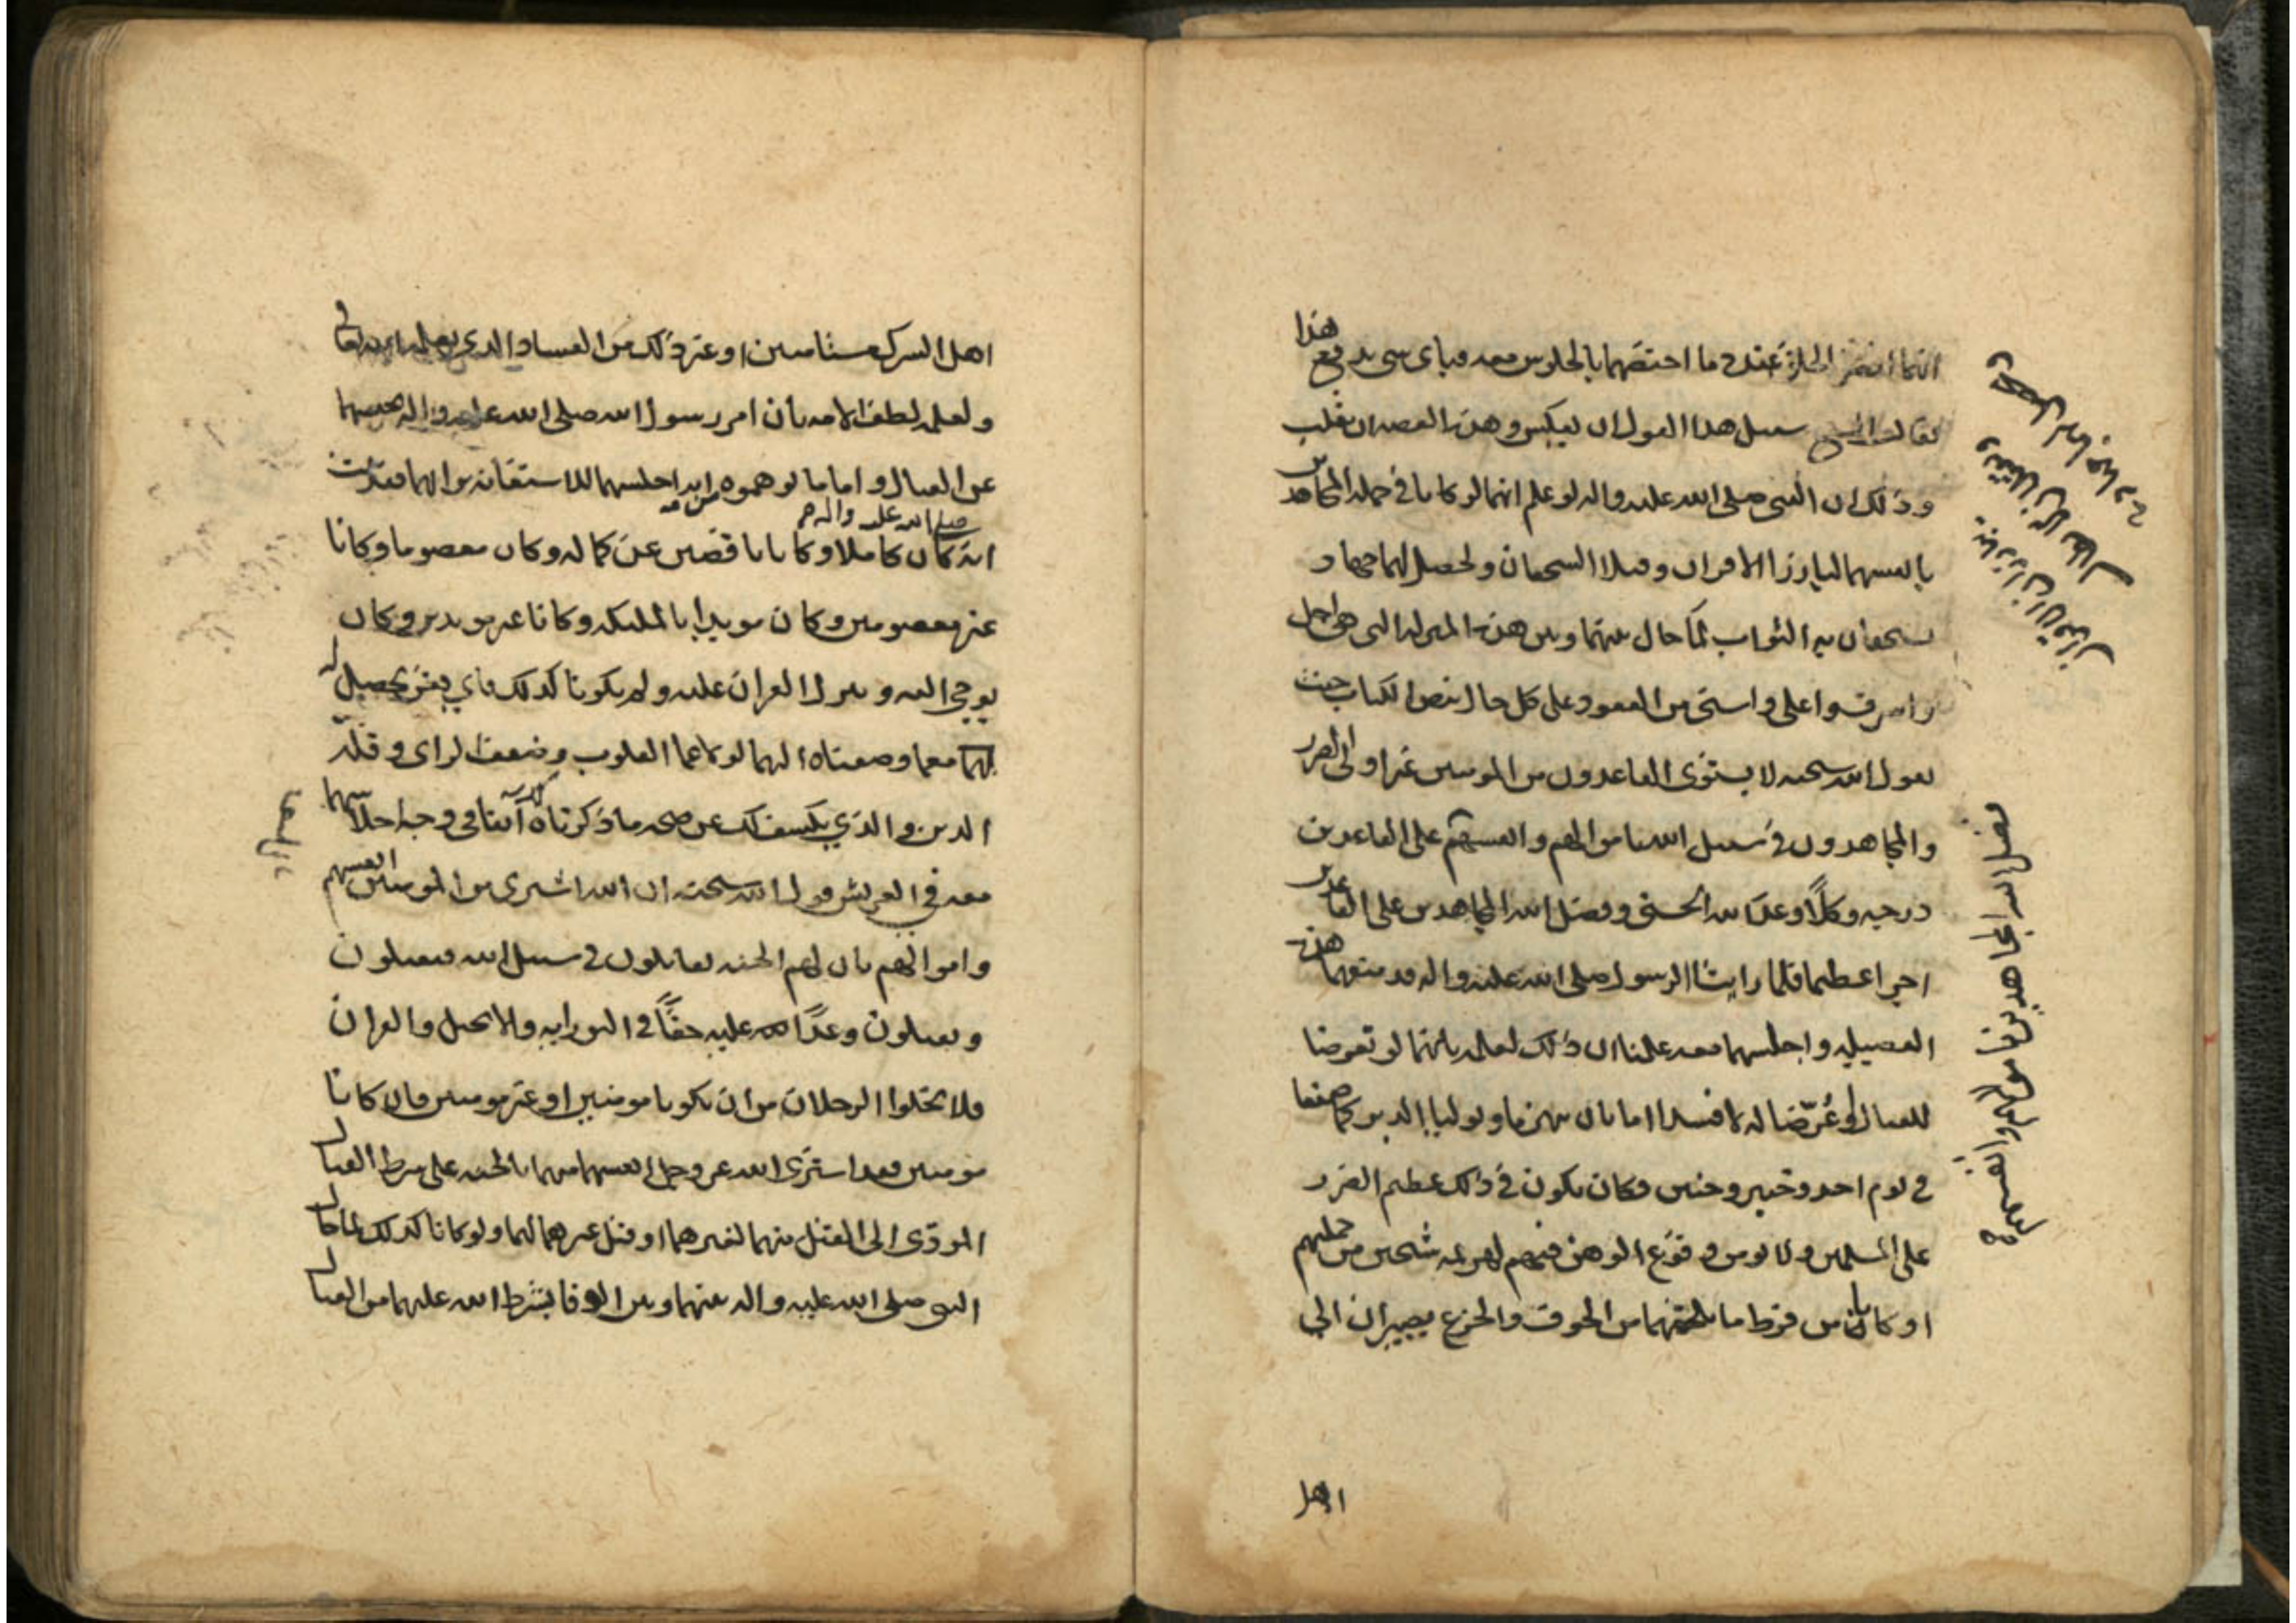 انهما افضل الخلق عنده ما اختصهما بالجلوس معه فباي شي يدفع هذا
فقال الشيخ سبيل هذا القول ان يعكس وهذه القصه ان تقلب
وذلك ان النبي صلى الله عليه واله لو علم انهما لو كانا في جمله المجاهدين
بانفسهما يبارزا الاقران ويقتلا الشجعان ولحصل لهما جهاد
يستحقان به الثواب لما حال بينهما وبين هذه المنزله التي هي اجل
واشرف واعلى واسنى من القعود على كل حال بنص الكتاب حيث
يقول الله سبحنه لا يستوى القاعدون من المومنين غير اولى الضرر
والمجاهدون في سبيل الله باموالهم وانفسهم على القاعدين
درجه وكلًا وعد الله الحسنى وفضل الله المجاهدين على القاعدين
اجرا عظيما فلما راينا الرسول صلى الله عليه واله قد منعهما هذه
الفضيله واجلسهما معه علمنا ان ذلك لعلمه بانهما لو تعرضا
للقتال او عُرّضا له لافسدا اما بان ينهزما او يوليا الدبر كما صنعا
في يوم احد وخيبر وحنين وكان يكون في ذلك عظيم الضرر
على المسلمين ولا يومن وقوع الوهن فيهم لهزيمه شيخين من جملتهم
او كانا من فرط ما يلحقهما من الخوف والجزع يصيران الي
اهل
فضل الله المجاهدين باموالهم وانفسهم صح
اهل الشرك مستامنين او غير ذلك من الفساد الذي يعلمه الله تعالى
ولعله لطف للامه بان امر رسول الله صلى الله عليه واله بحبسهما
عن القتال واما ما توهموه من انه اجلسهما للاستعانه برايهما فقد ثبت
انه صلى الله عليه واله كان كاملا وكانا ناقصين عن كماله وكان معصوما وكانا
غير معصومين وكان مويدا بالمليكه وكانا غير مويدين وكان
يوحي اليه وينزل القران عليه ولم يكونا كذلك فاي فقر يحصل له
لهما مع ما وصفناه اليهما لولا عما القلوب وضعف الراى وقلّه
الدين والذي يكشف لك عن صحه ما ذكرناه آنفا في وجه اجلاسهما
معه في العريش قول الله سبحنه ان الله اشترى من المومنين انفسهم
واموالهم بان لهم الجنه يقاتلون في سبيل الله فيقتلون
ويقتلون وعدًا عليه حقًا في التورايه والانجيل والقران
فلا يخلوا الرجلان من ان يكونا مومنين او غير مومنين فان كانا
مومنين فقد اشترى الله عز وجل انفسهما منهما بالجنه على شرط القتال
المودّى الى القتل منهما لغيرهما او قتل غيرهما لهما ولو كانا كذلك لما حال
النبي صلى الله عليه واله بينهما وبين الوفا بشرط الله عليهما من القتال